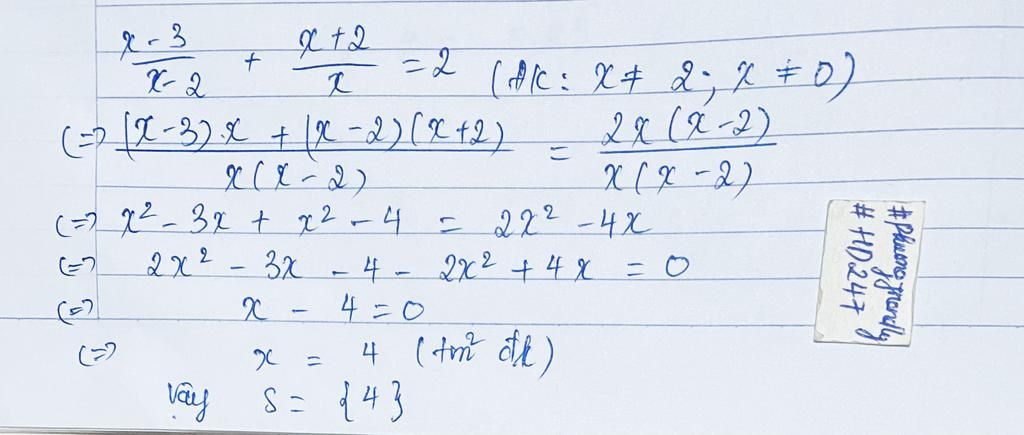 x - 3 / x - 2 + x + 2 / x = 2 (ĐK: x ≠ 2; x ≠ 0)
(=) (x - 3).x + (x - 2)(x + 2) / x(x - 2) = 2x(x - 2) / x(x - 2)
(=) x² - 3x + x² - 4 = 2x² - 4x
(=) 2x² - 3x - 4 - 2x² + 4x = 0
(=) x - 4 = 0
(=) x = 4 (tm² đk)
Vậy S = {4}
# HD247